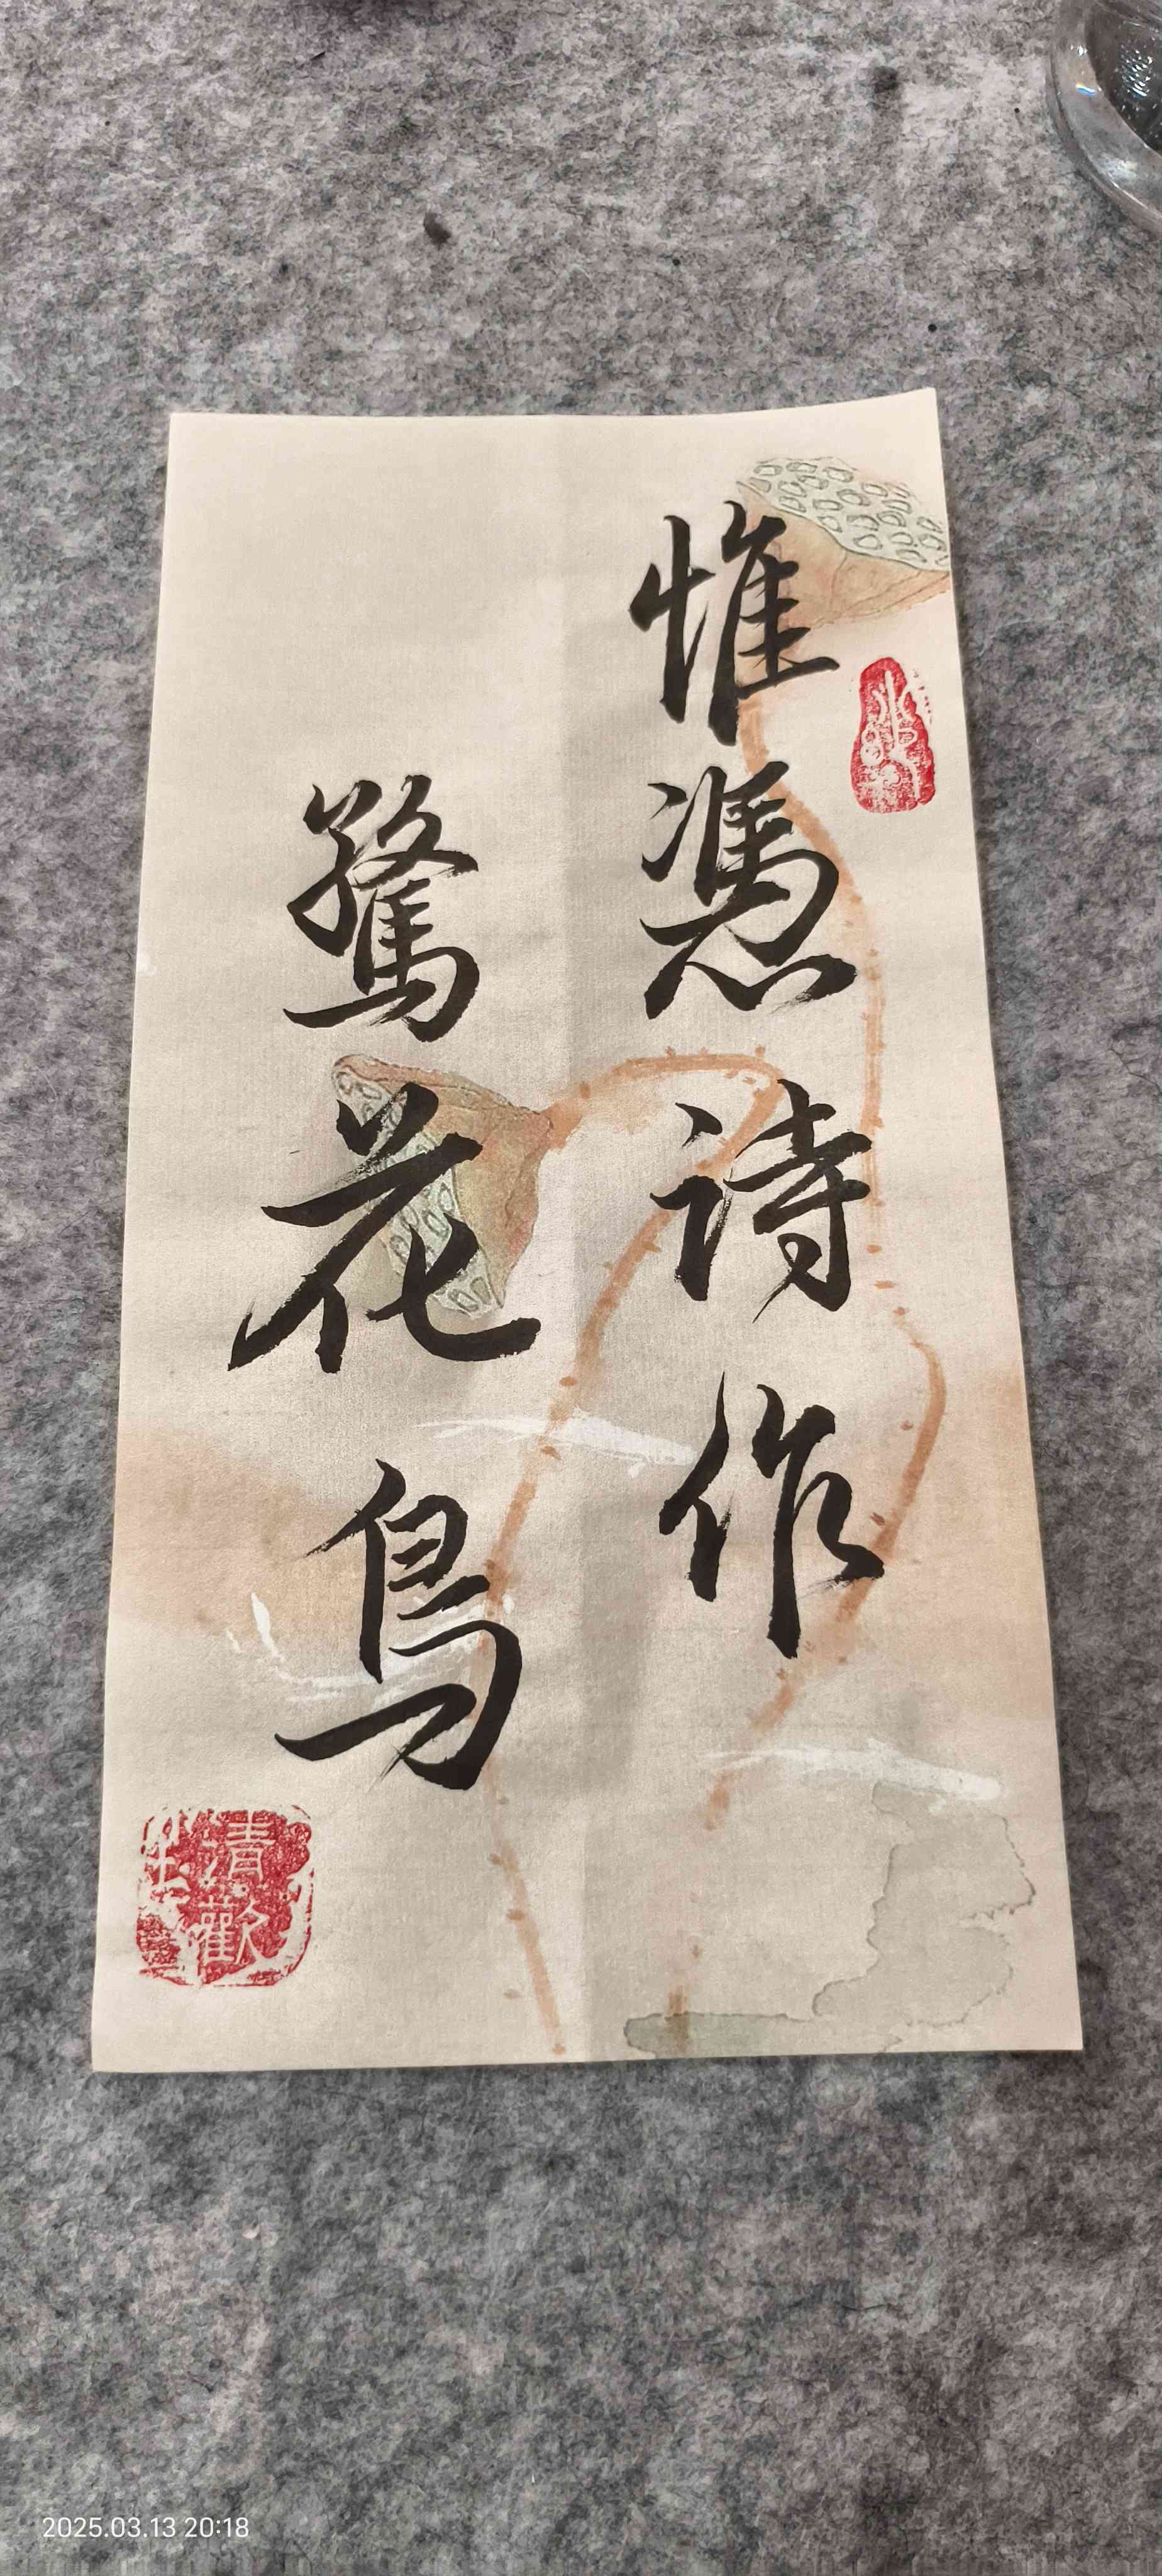 惟憑诗作
驚花鳥
清歡
2025.03.13 20:18